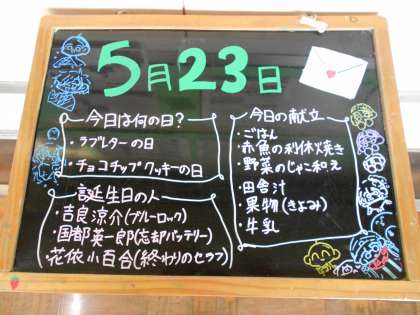 5月23日
今日は何の日?
・ラブレターの日
・チョコチップクッキーの日
誕生日の人
・吉良涼介(ブルーロック)
・国都英一郎(忘却バッテリー)
・花依小百合(終わりのセラフ)
今日の献立
・ごはん
・赤魚の利休焼き
・野菜のじゃこ和え
・田舎汁
・果物(きよみ)
・牛乳